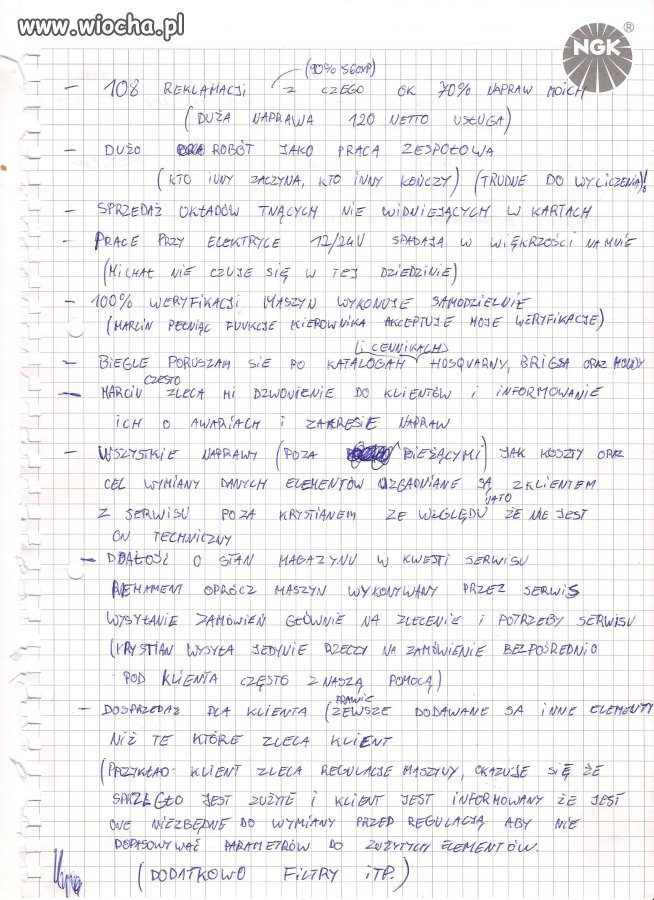 www.wiocha.pl
NGK ®
(90% SGOXP)
- 108 REKLAMACJI Z CZEGO OK 70% NAPRAW MOICH
(DUŻA NAPRAWA 120 NETTO USŁUGA)
- DUŻO ROBÓT JAKO PRACA ZESPOŁOWA
(KTO INNY ZACZYNA, KTO INNY KOŃCZY) (TRUDNE DO WYLICZENIA)!
- SPRZEDAŻ UKŁADÓW TNĄCYCH NIE WIDNIEJĄCYCH W KARTACH
- PRACE PRZY ELEKTRYCE 12/24V SPADAJĄ W WIĘKRZOŚCI NA MNIE
(MICHAŁ NIE CZUJE SIĘ W TEJ DZIEDZINIE)
- 100% WERYFIKACJI MASZYN WYKONUJE SAMODZIELNIE
(MARCIN PEŁNIĄC FUNKCJE KIEROWNIKA AKCEPTUJE MOJE WERYFIKACJE)
(I CENNIKACH)
- BIEGLE PORUSZAM SIE PO KATALOGAH HUSQVARNY, BRIGSA ORAZ HONDY
CZĘSTO
- MARCIN ZLECA MI DZWONIENIE DO KLIENTÓW I INFORMOWANIE
ICH O AWARIACH I ZAKRESIE NAPRAW
- WSZYSTKIE NAPRAWY (POZA BIEŻĄCYMI) JAK KOSZTY ORAZ
CEL WYMIANY DANYCH ELEMENTÓW UZGADNIANE SĄ Z KLIENTEM
NATO
Z SERWISU POZA KRYSTIANEM ZE WZGLĘDU ŻE NIE JEST
ON TECHNICZNY
- DBAŁOŚĆ O STAN MAGAZYNU W KWESTI SERWISU
REMAMENT OPRÓCZ MASZYN WYKONYWANY PRZEZ SERWIS
WYSYŁANIE ZAMÓWIEŃ GŁÓWNIE NA ZLECENIE I POTRZEBY SERWISU
(KRYSTIAN WYSYŁA JEDYNIE RZECZY NA ZAMÓWIENIE BEZPOŚREDNIO
POD KLIENTA CZĘSTO Z NASZĄ POMOCĄ)
PRAWIE
- DOSPRZEDAŻ DLA KLIENTA (ZEWSZE DODAWANE SA INNE ELEMENTY
NIŻ TE KTÓRE ZLECA KLIENT
(PRZYKŁAD: KLIENT ZLECA REGULACJE MASZYNY, OKAZUJE SIĘ ŻE
SPRZĘGŁO JEST ZUŻYTE I KLIENT JEST INFORMOWANY ŻE JEST
ONE NIEZBĘDNE DO WYMIANY PRZED REGULACJĄ ABY NIE
DOPASOWYWAĆ PARAMETRÓW DO ZUŻYTYCH ELEMENTÓW.
(DODATKOWO FILTRY ITP.)